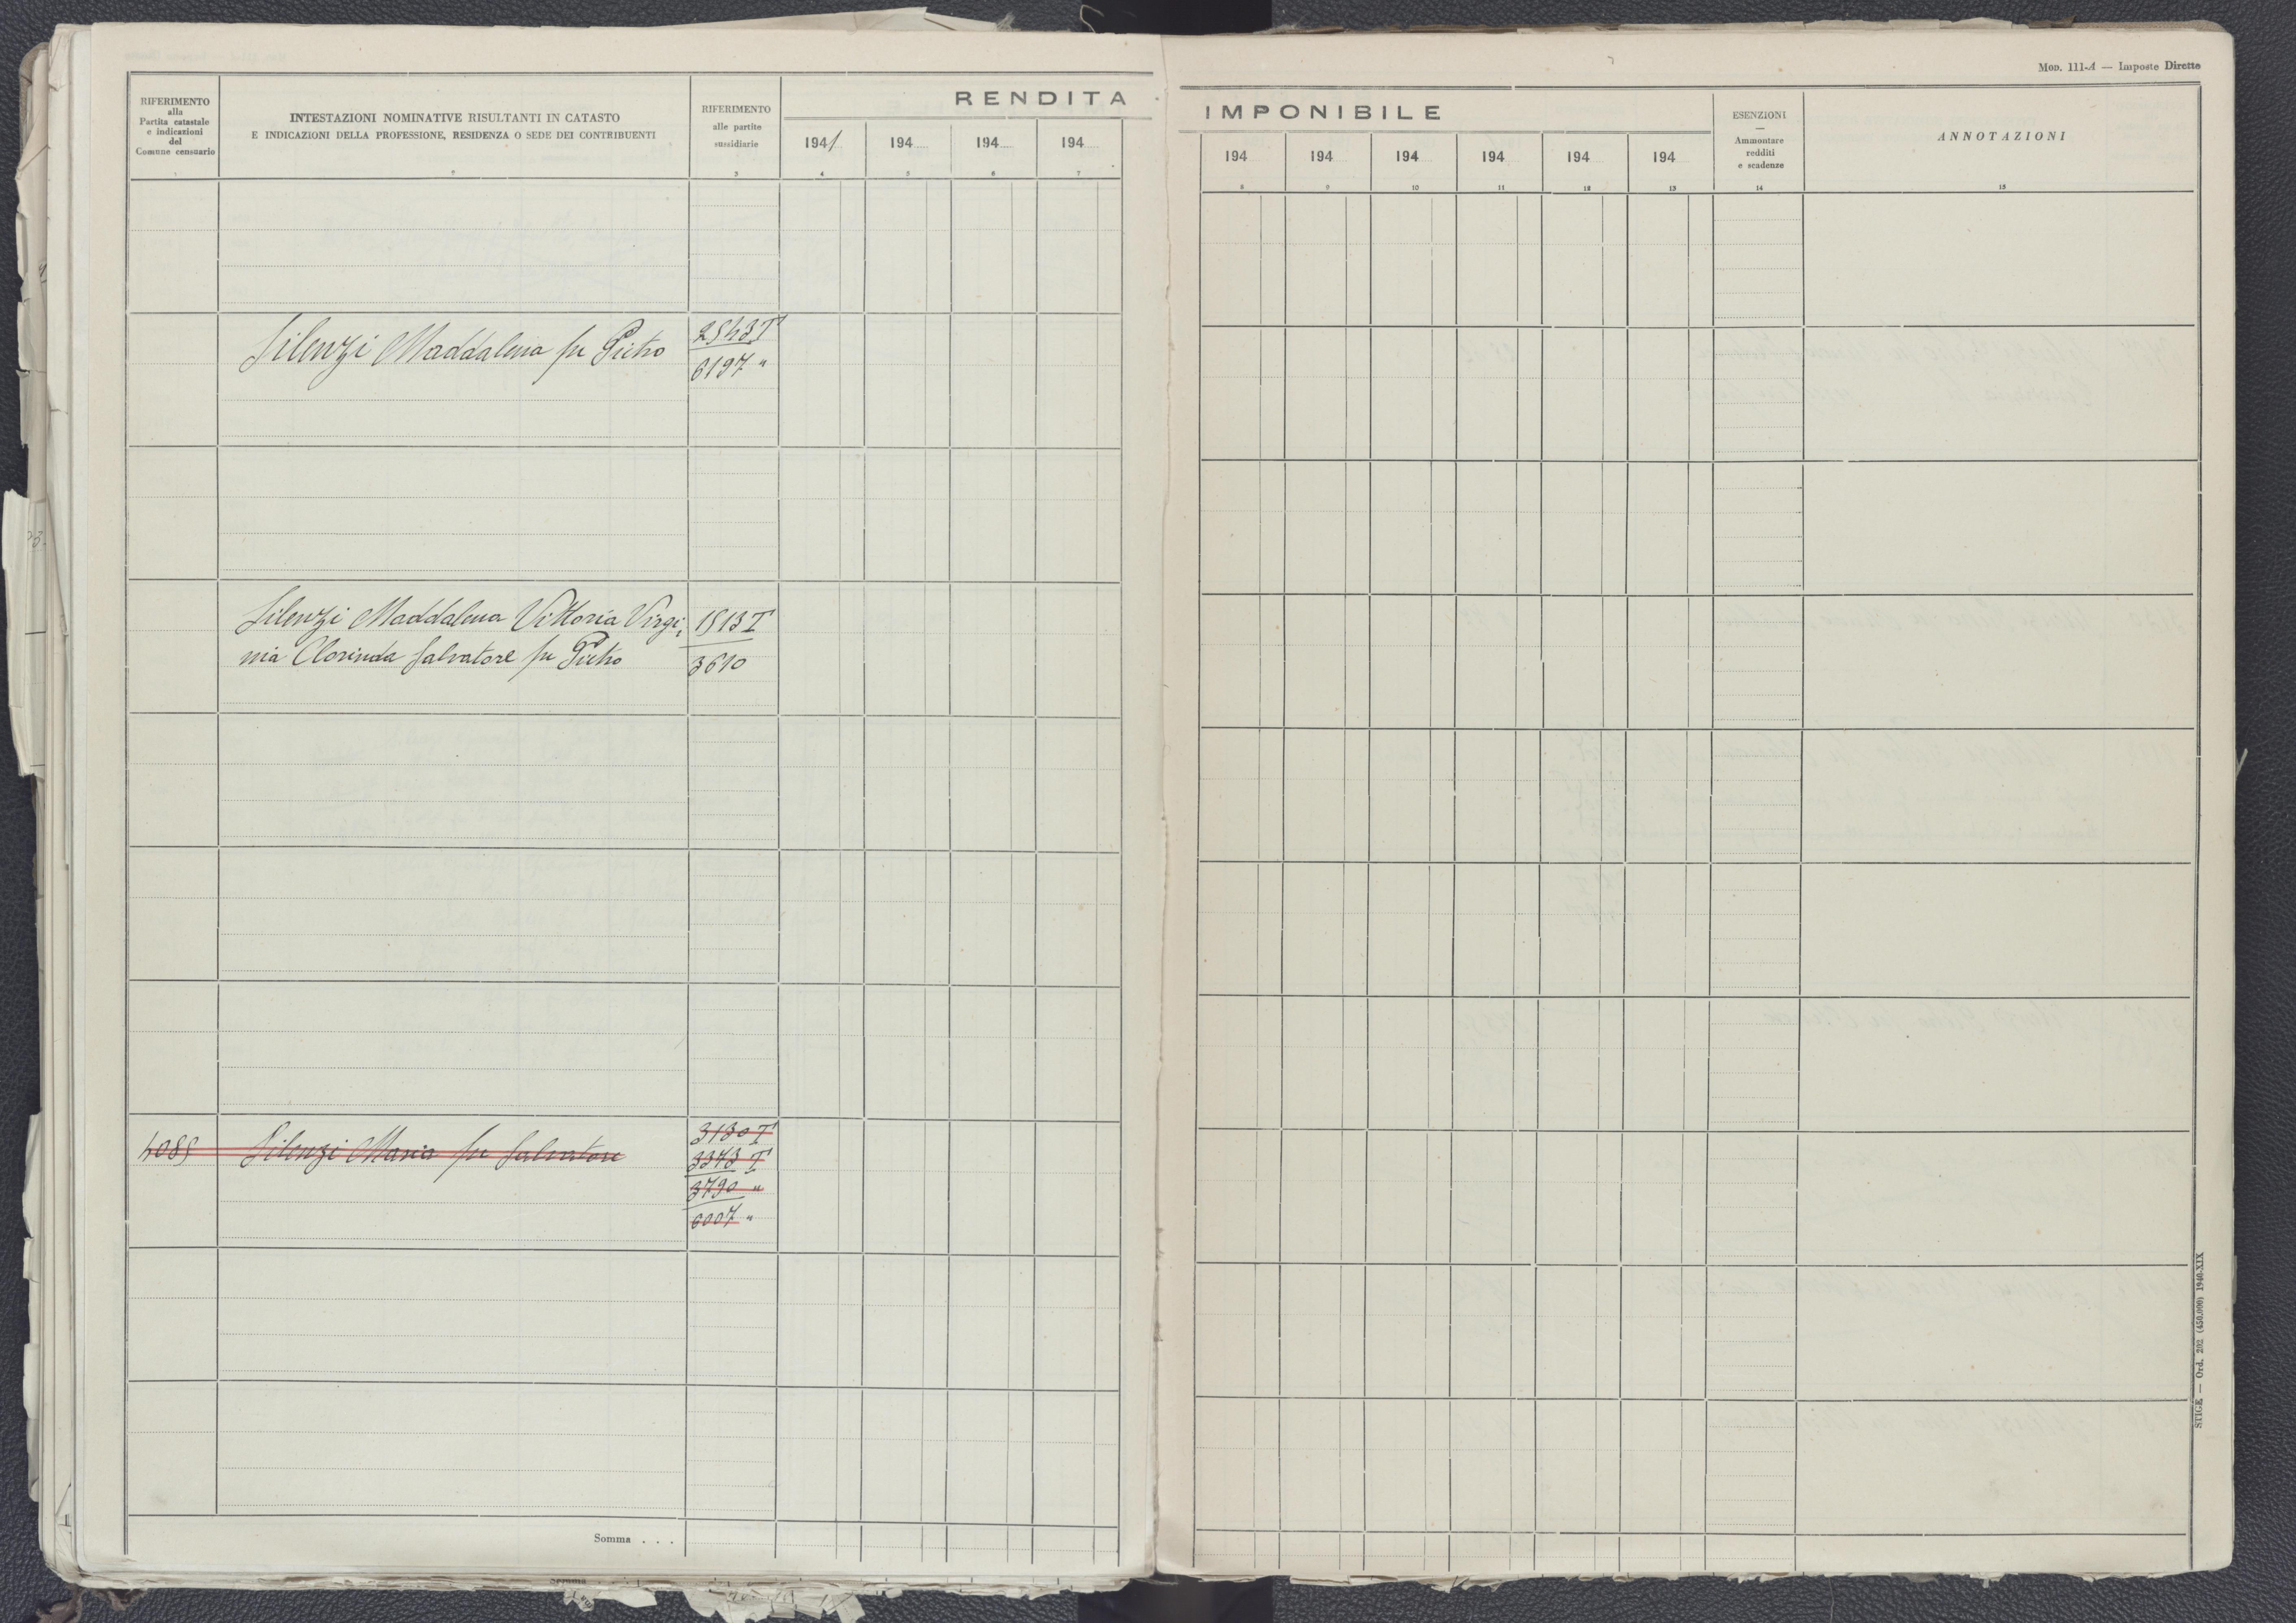 Mod. 111-A — Imposte Dirette
RIFERIMENTO
alla
Partita catastale
e indicazioni
del
Comune censuario
1
INTESTAZIONI NOMINATIVE RISULTANTI IN CATASTO
E INDICAZIONI DELLA PROFESSIONE, RESIDENZA O SEDE DEI CONTRIBUENTI
2
RIFERIMENTO
alle partite
sussidiarie
3
RENDITA IMPONIBILE
1941 194 194 194 194 194 194 194 194 194
4 5 6 7 8 9 10 11 12 13
ESENZIONI
—
Ammontare
redditi
e scadenze
14
ANNOTAZIONI
15
Silenzi Maddalena fu Pietro 2543 T
6197 "
Silenzi Maddalena Vittoria Virgi- 1513 T
nia Clorinda Salvatore fu Pietro 3610
4085 Silenzi Maria fu Salvatore 3130 T
3343 T
3790 "
6007 "
Somma . . .
STIGE — Ord. 202 (450.000) 1940-XIX
Somma